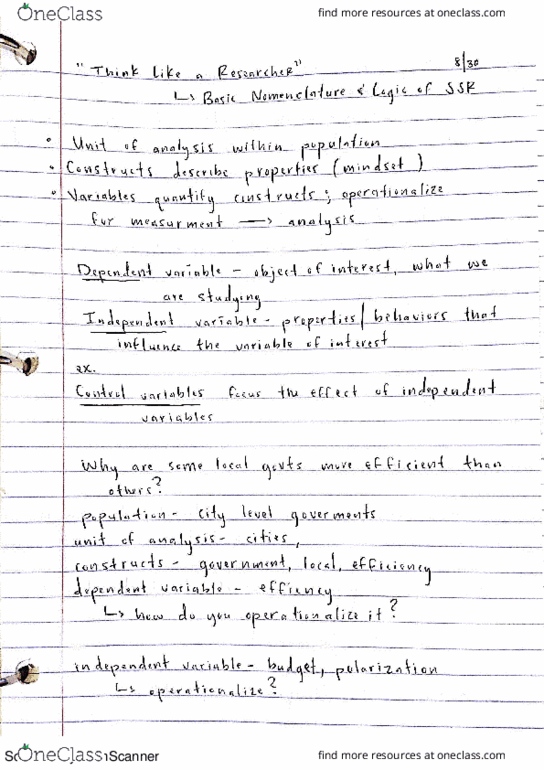 OneClass
find more resources at oneclass.com
"Think Like a Researcher"
8/30
↳ Basic Nomenclature & Logic of SSR
• Unit of analysis within population
• Constructs describe properties (mindset)
• Variables quantify constructs; operationalize
for measurment → analysis
Dependent variable - object of interest, what we
are studying
Independent variable - properties/behaviors that
influence the variable of interest
ex.
Control variables focus the effect of independent
variables
Why are some local govts more efficient than
others?
population - city level goverments
unit of analysis - cities,
constructs - government, local, efficiency
dependent variable - effiency
↳ how do you operationalize it?
independent variable - budget, polarization
↳ operationalize?
OneClass
Scanner
find more resources at oneclass.com